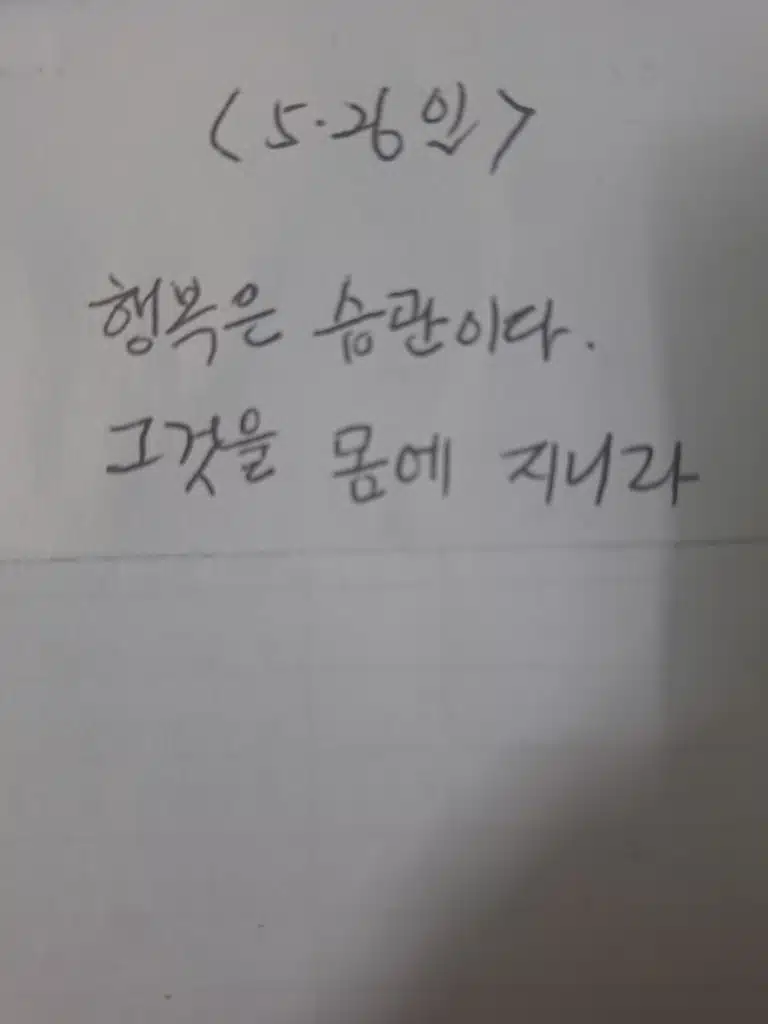 <5.26일>
행복은 습관이다.
그것을 몸에 지니라